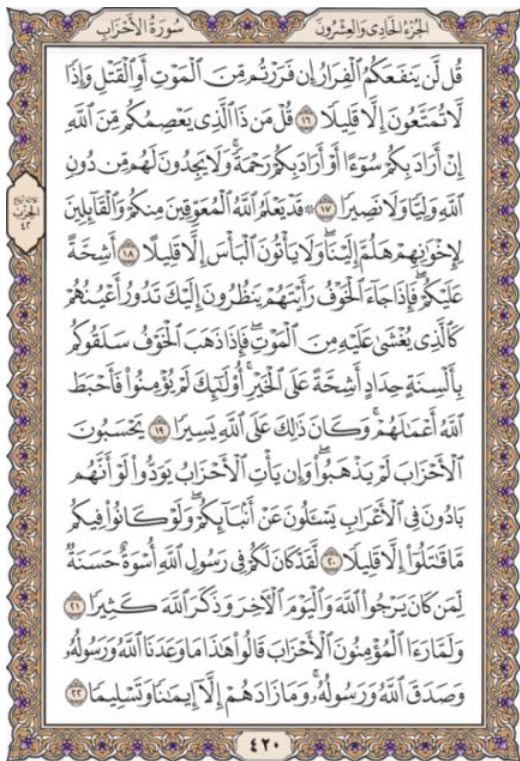 الجُزْءُ الحَادِي وَالعِشْرُونَ
سُورَةُ الأَحْزَابِ
قُل لَّن يَنفَعَكُمُ ٱلْفِرَارُ إِن فَرَرْتُم مِّنَ ٱلْمَوْتِ أَوِ ٱلْقَتْلِ وَإِذًا
لَّا تُمَتَّعُونَ إِلَّا قَلِيلًا ١٦ قُلْ مَن ذَا ٱلَّذِي يَعْصِمُكُم مِّنَ ٱللَّهِ
إِنْ أَرَادَ بِكُمْ سُوٓءًا أَوْ أَرَادَ بِكُمْ رَحْمَةً ۚ وَلَا يَجِدُونَ لَهُم مِّن دُونِ
ٱللَّهِ وَلِيًّا وَلَا نَصِيرًا ١٧ ۞ قَدْ يَعْلَمُ ٱللَّهُ ٱلْمُعَوِّقِينَ مِنكُمْ وَٱلْقَآئِلِينَ
لِإِخْوَٰنِهِمْ هَلُمَّ إِلَيْنَا ۖ وَلَا يَأْتُونَ ٱلْبَأْسَ إِلَّا قَلِيلًا ١٨ أَشِحَّةً
عَلَيْكُمْ ۖ فَإِذَا جَآءَ ٱلْخَوْفُ رَأَيْتَهُمْ يَنظُرُونَ إِلَيْكَ تَدُورُ أَعْيُنُهُمْ
كَٱلَّذِي يُغْشَىٰ عَلَيْهِ مِنَ ٱلْمَوْتِ ۖ فَإِذَا ذَهَبَ ٱلْخَوْفُ سَلَقُوكُم
بِأَلْسِنَةٍ حِدَادٍ أَشِحَّةً عَلَى ٱلْخَيْرِ ۚ أُو۟لَٰٓئِكَ لَمْ يُؤْمِنُوا۟ فَأَحْبَطَ
ٱللَّهُ أَعْمَٰلَهُمْ ۚ وَكَانَ ذَٰلِكَ عَلَى ٱللَّهِ يَسِيرًا ١٩ يَحْسَبُونَ
ٱلْأَحْزَابَ لَمْ يَذْهَبُوا۟ ۖ وَإِن يَأْتِ ٱلْأَحْزَابُ يَوَدُّوا۟ لَوْ أَنَّهُم
بَادُونَ فِي ٱلْأَعْرَابِ يَسْـَٔلُونَ عَنْ أَنۢبَآئِكُمْ ۖ وَلَوْ كَانُوا۟ فِيكُم
مَّا قَٰتَلُوٓا۟ إِلَّا قَلِيلًا ٢٠ لَّقَدْ كَانَ لَكُمْ فِي رَسُولِ ٱللَّهِ أُسْوَةٌ حَسَنَةٌ
لِّمَن كَانَ يَرْجُوا۟ ٱللَّهَ وَٱلْيَوْمَ ٱلْءَاخِرَ وَذَكَرَ ٱللَّهَ كَثِيرًا ٢١
وَلَمَّا رَءَا ٱلْمُؤْمِنُونَ ٱلْأَحْزَابَ قَالُوا۟ هَٰذَا مَا وَعَدَنَا ٱللَّهُ وَرَسُولُهُۥ
وَصَدَقَ ٱللَّهُ وَرَسُولُهُۥ ۚ وَمَا زَادَهُمْ إِلَّآ إِيمَٰنًا وَتَسْلِيمًا ٢٢
الحِزْب
٤٢
٤٢٠